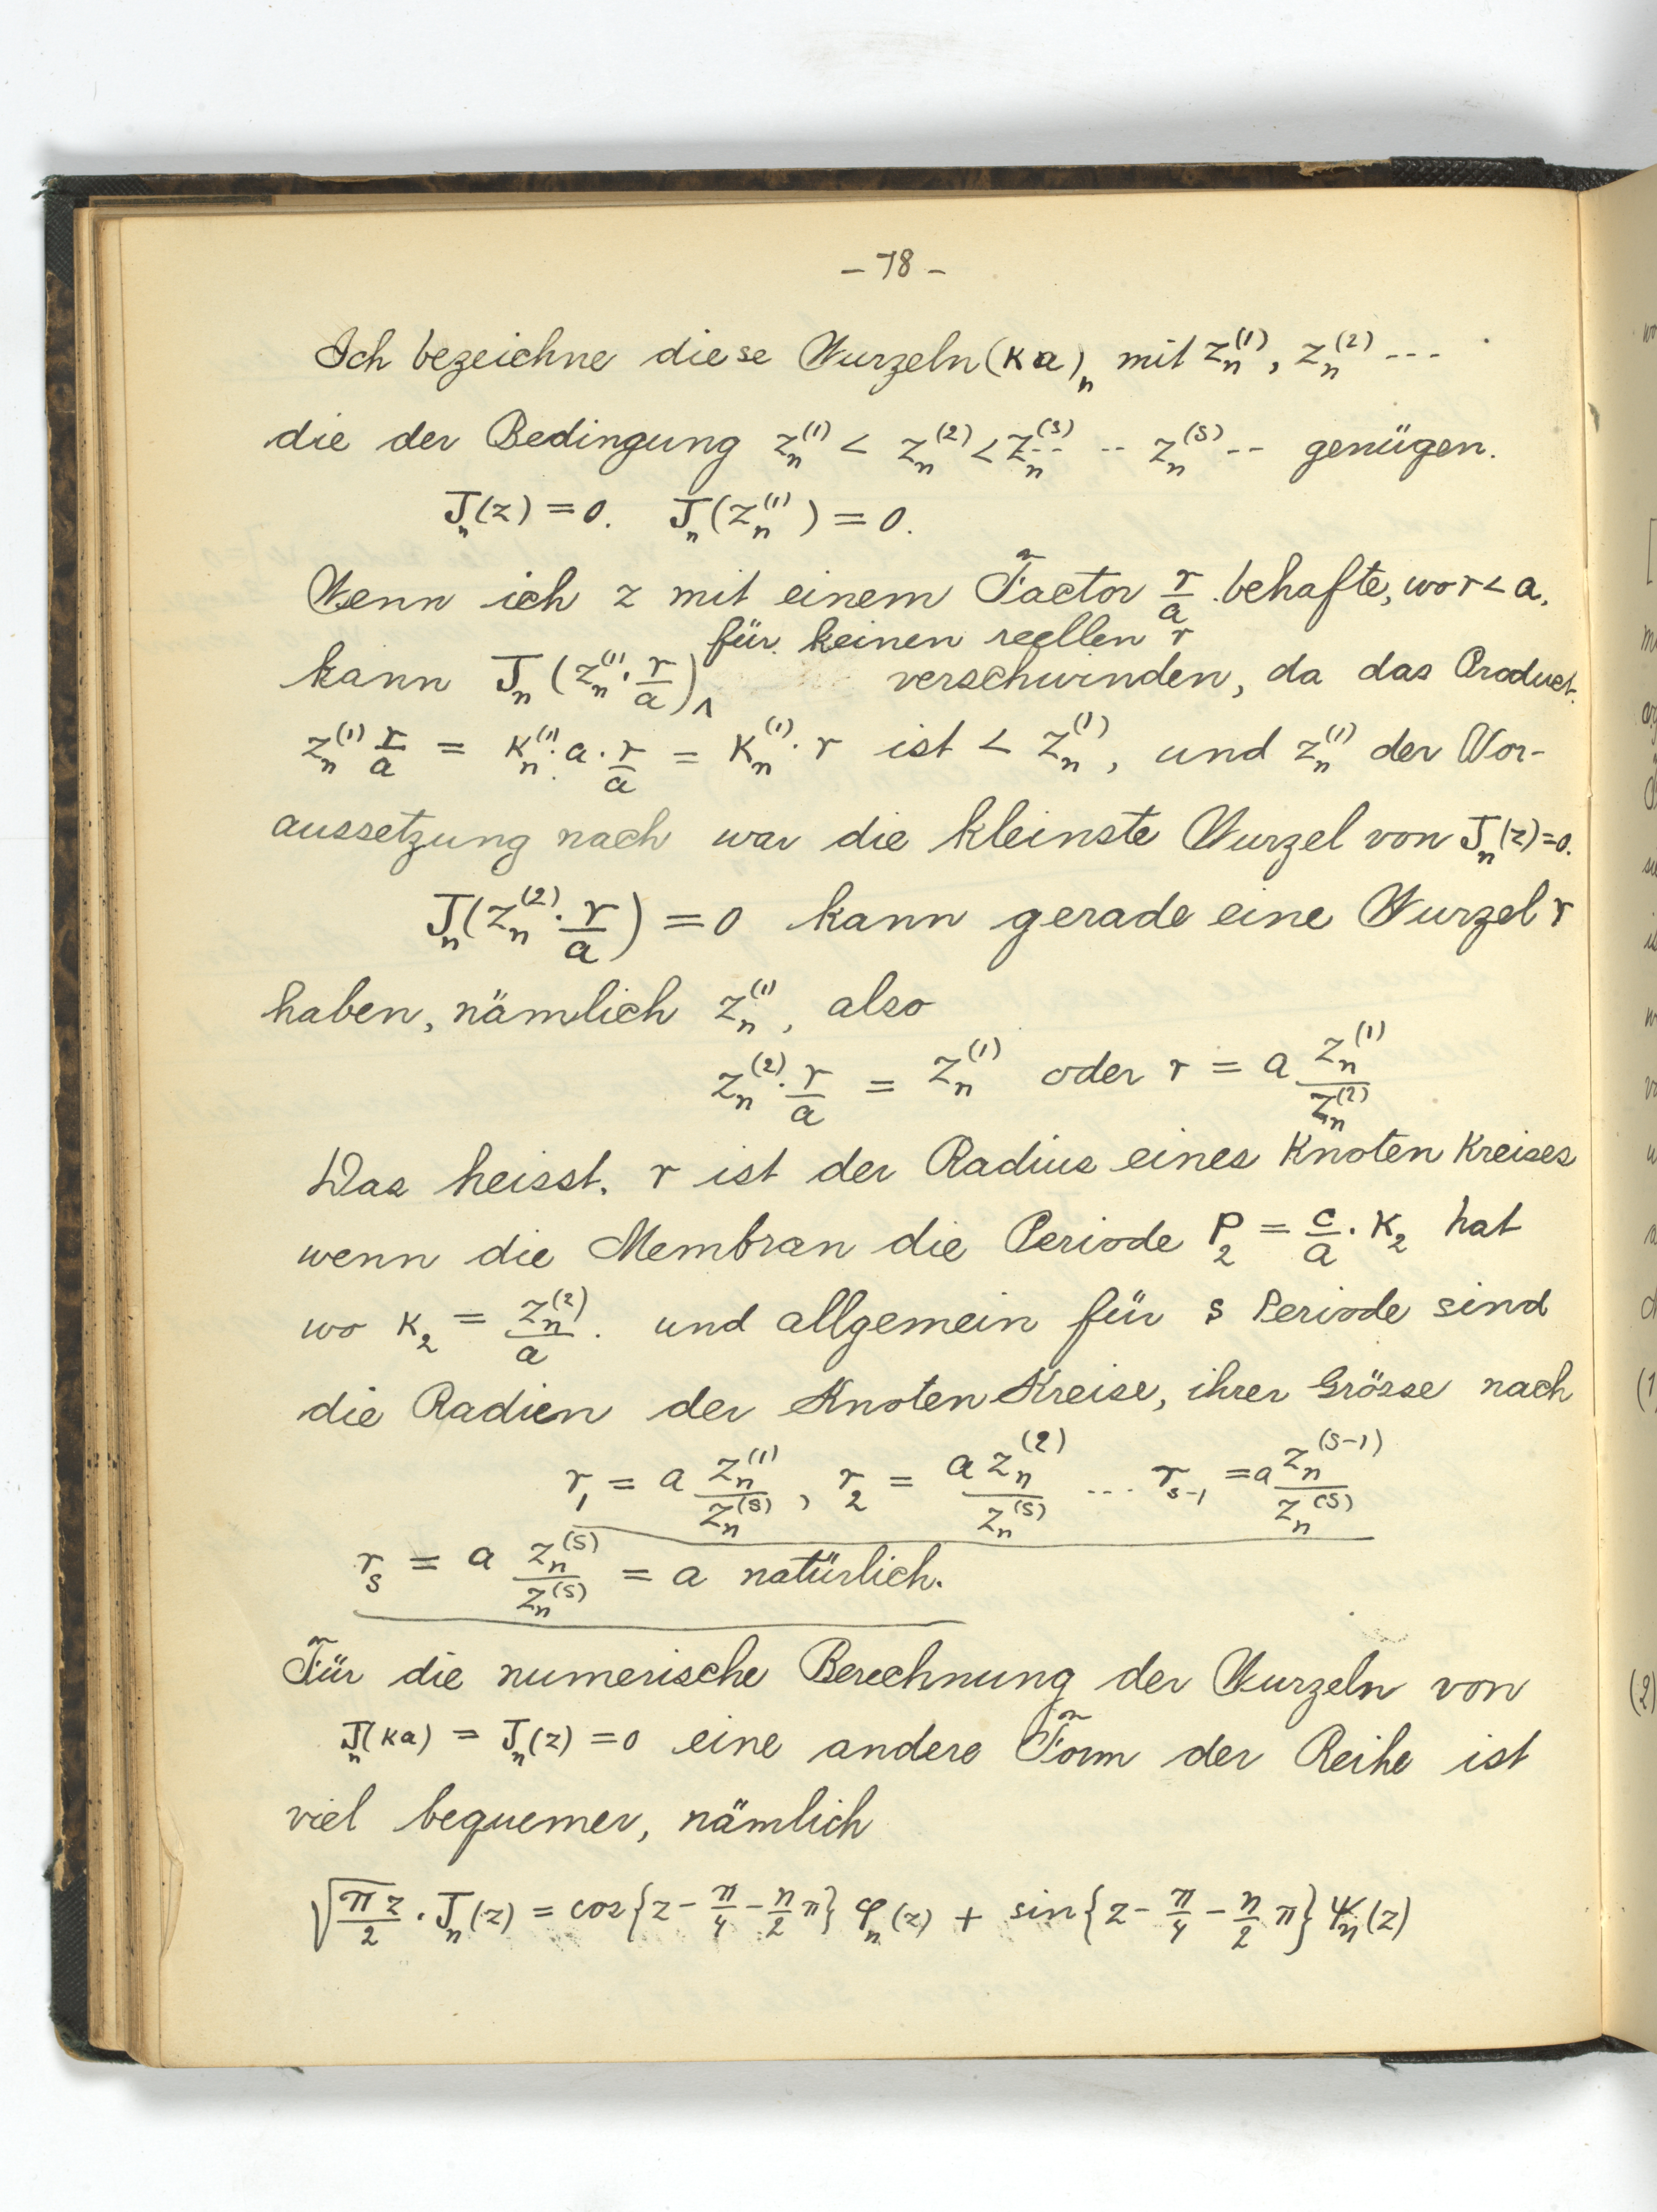 – 78 –
Ich bezeichne diese Wurzeln (κa)_n mit z_n^(1), z_n^(2) ---
die der Bedingung z_n^(1) < z_n^(2) < z_n^(3) -- -- z_n^(s) -- genügen.
J_n(z) = 0. J_n(z_n^(1)) = 0.
Wenn ich z mit einem Factor r/a behafte, wo r < a,
für keinen reellen r
kann J_n(z_n^(1) · r/a) verschwinden, da das Product
z_n^(1) r/a = κ_n^(1) · a · r/a = κ_n^(1) · r ist < z_n^(1), und z_n^(1) der Vor-
aussetzung nach war die kleinste Wurzel von J_n(z)=0.
J_n(z_n^(2) · r/a) = 0 kann gerade eine Wurzel r
haben, nämlich z_n^(1), also
z_n^(2) · r/a = z_n^(1) oder r = a z_n^(1)/z_n^(2)
Das heisst. r ist der Radius eines Knoten Kreises
wenn die Membran die Periode P_2 = c/a · κ_2 hat
wo κ_2 = z_n^(2)/a. und allgemein für s Periode sind
die Radien der Knoten Kreise, ihrer Grösse nach
r_1 = a z_n^(1)/z_n^(s), r_2 = a z_n^(2)/z_n^(s) ... r_{s-1} = a z_n^(s-1)/z_n^(s)
r_s = a z_n^(s)/z_n^(s) = a natürlich.
Für die numerische Berechnung der Wurzeln von
J_n(κa) = J_n(z) = 0 eine andere Form der Reihe ist
viel bequemer, nämlich
√(πz/2) · J_n(z) = cos{z - π/4 - n/2 π} φ_n(z) + sin{z - π/4 - n/2 π} ψ_n(z)